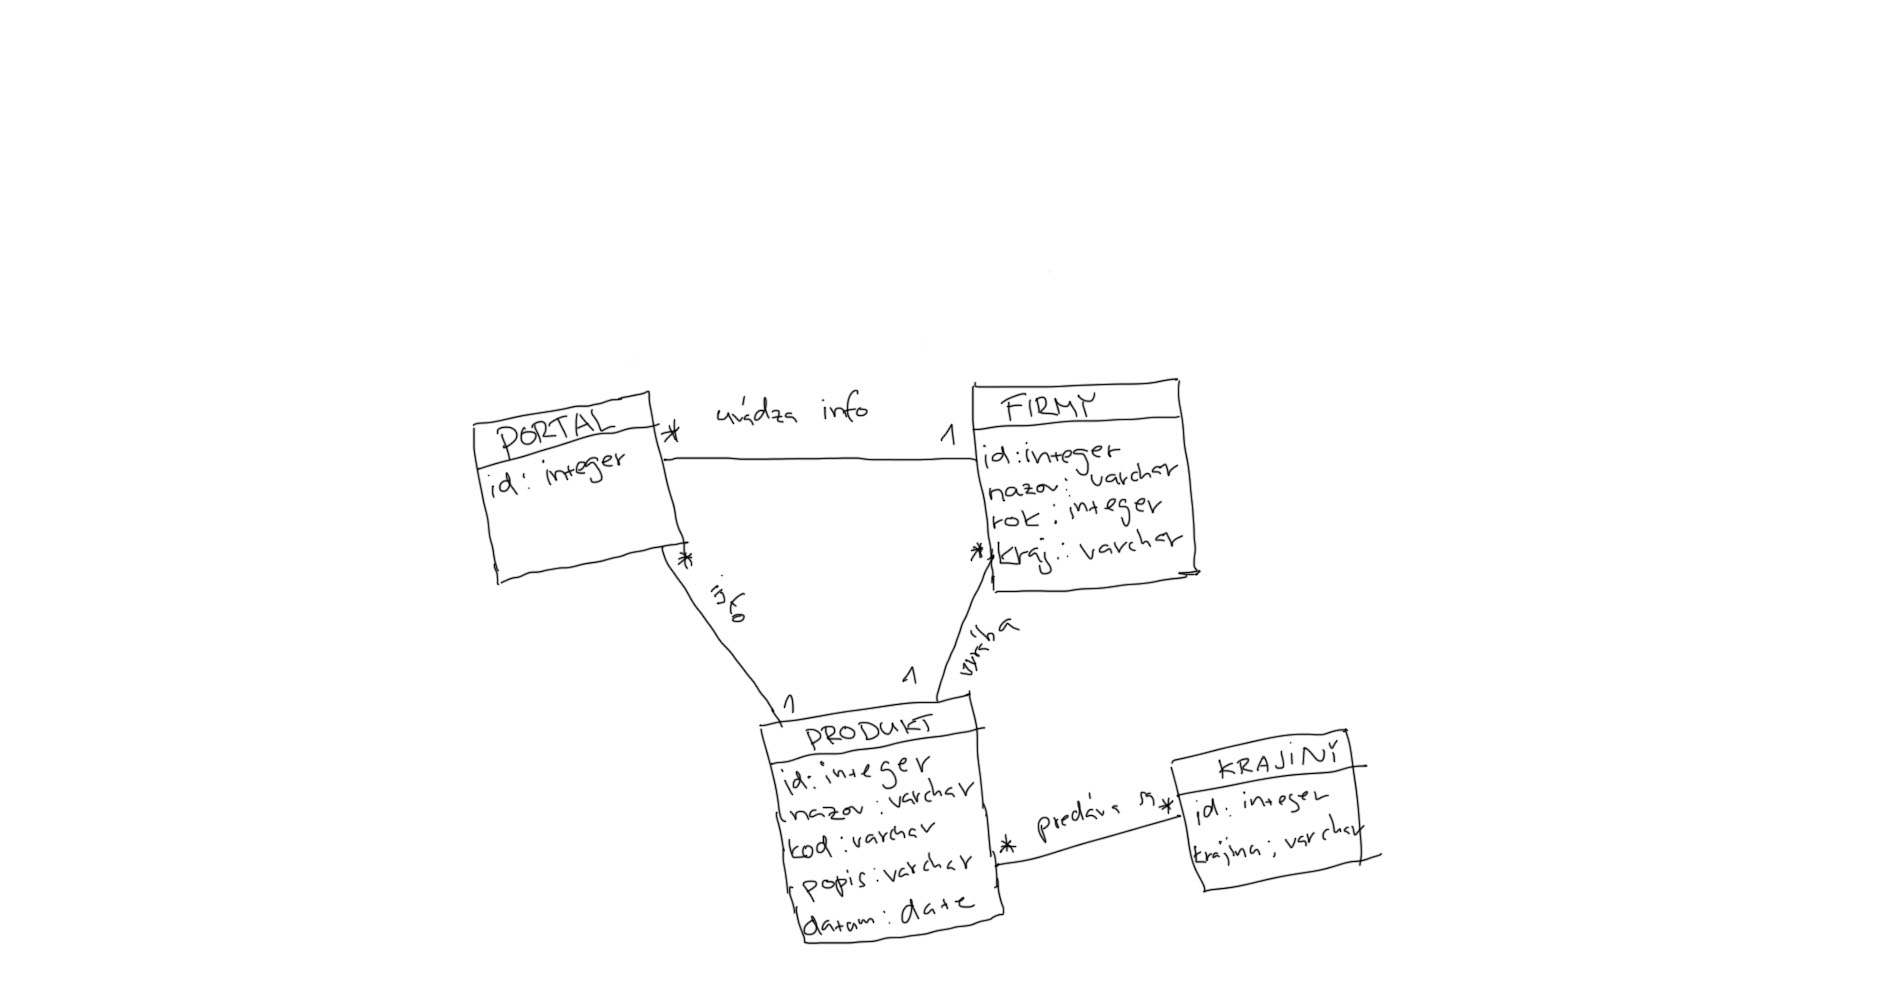 PORTAL
id: integer
*
uvádza info
1
FIRMY
id:integer
nazov: varchar
rok: integer
kraj: varchar
*
*
1
1
vyrába
PRODUKT
id: integer
nazov: varchar
kod: varchar
popis: varchar
datum: date
*
predáva sa
*
KRAJINY
id: integer
krajina: varchar